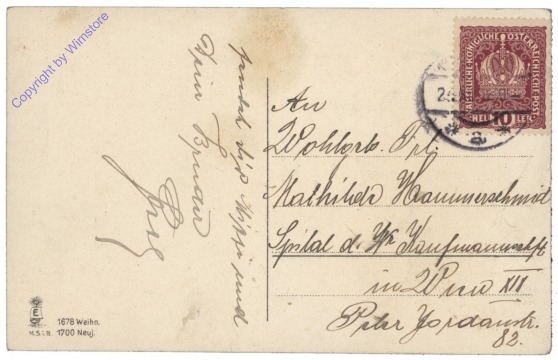 Copyright by Wimstore
sendet dir
Dein Bruder
KAISERLICHE KÖNIGLICHE ÖSTERREICHISCHE POST
HELLER 10
An
Wohlgeb. Frl.
Mathilde Hammerschmid
Spital d. Wr Kaufmannschaft
in Wien XIX
Peter Jordanstr.
82.
E
M.S.i.B.
1678 Weihn.
1700 Neuj.